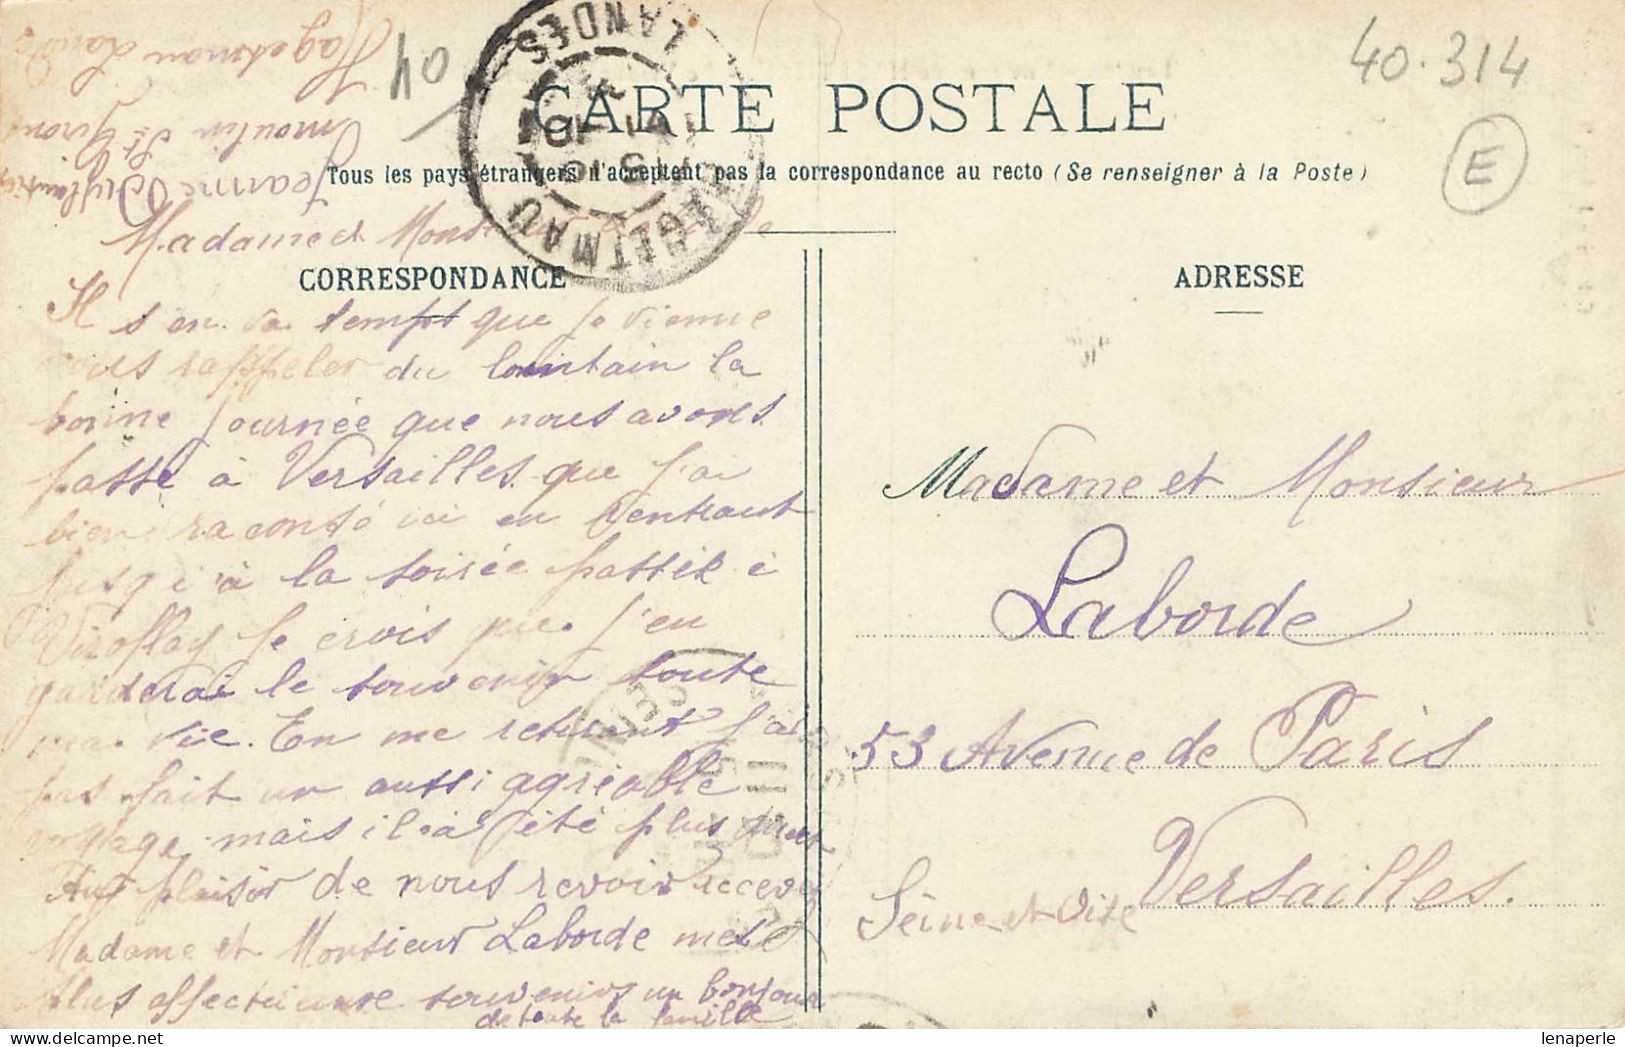 40.314
E
04
LANDES
HAGETMAU
CARTE POSTALE
Tous les pays étrangers n'acceptent pas la correspondance au recto (Se renseigner à la Poste)
Hagetmau Landes
moulin St Girons
Jeanne
Madame et Monsieur Laborde
CORRESPONDANCE
Il s en va tempt que je vienne
vous rappeler du lointain la
bonne journée que nous avons
passe à Versailles que j'ai
bien raconté ici en rentrant
jusqu'à la soirée passée à
Viroflay je crois que j'en
garderai le souvenir toute
ma vie. En me retirant j'ai
pas fait un aussi agréable
voyage mais il à été plus direct
Au plaisir de nous revoir recevez
Madame et Monsieur Laborde mes
plus affectueuse souvenirs un bonjour
de toute la famille
ADRESSE
Madame et Monsieur
Laborde
53 Avenue de Paris
Versailles.
Seine et Oise
lenaperle